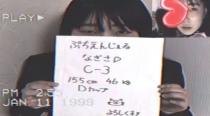 PLAY
ぷちえんじぇる
なぎさ
C-3
155cm 46kg
Dカップ
よろしくネ
PM 2:
JAN.11 1999